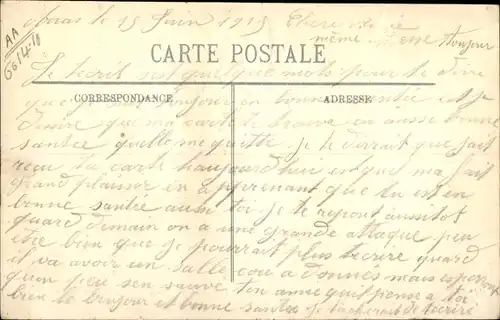 Arras le 15 Juin 1915 Chere
même adresse toujour
AA
6614.18
CARTE POSTALE
Je tecrit ses quelque mots pour te dire
CORRESPONDANCE
ADRESSE
que je suis toujour en bonne santée et je
desire que ma carte te trouve en aussi bonne
santée quelle me quitte je te dirrait que jait
reçu ta carte haujourdhui est que ma fait
grand plaisir en apprenant que tu est en
bonne santée aussi toi je te repont aussitot
quard demain on a une grande attaque peu
etre bien que je pourrait plus tecrire quard
il va avoir un salle cou a donnes mais esperons
quon peu sen sauve ton amie quit pense a toi
bien le bonjour et bonne santée je tacherait de tecrire